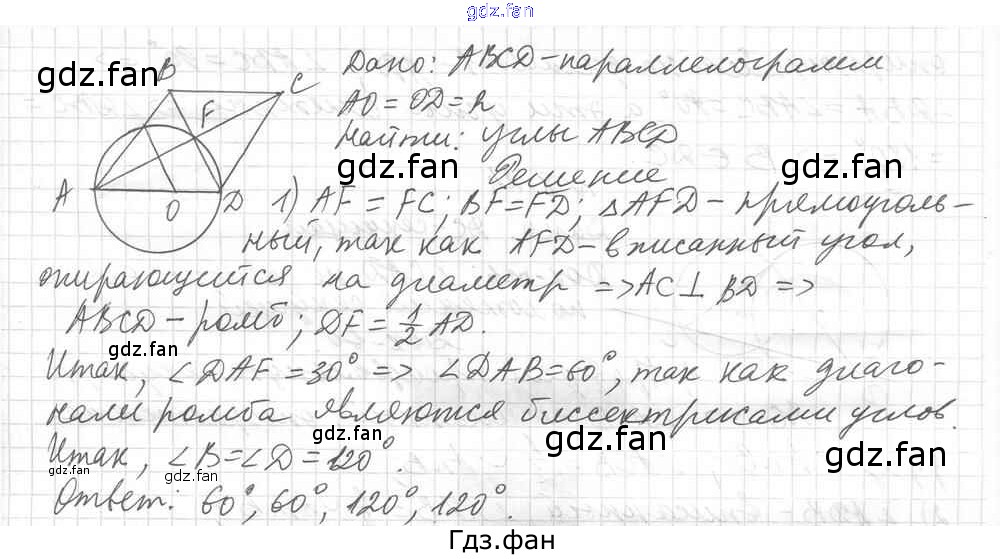 gdz.fan
gdz.fan
B C F A O D
Дано: ABCD-параллелограмм
AO = OD = R
gdz.fan
Найти: углы ABCD
gdz.fan gdz.fan
Решение
1) AF = FC; BF = FD; △AFD - прямоуголь-
ный, так как AFD - вписанный угол,
опирающийся на диаметр => AC ⊥ BD =>
gdz.fan gdz.fan
ABCD - ромб; DF = 1/2 AD.
gdz.fan
Итак, ∠DAF = 30° => ∠DAB = 60°, так как диаго-
gdz.fan
нали ромба являются биссектрисами углов.
gdz.fan gdz.fan
Итак, ∠B = ∠D = 120°.
gdz.fan gdz.fan
Ответ: 60°, 60°, 120°, 120°.
gdz.fan
Гдз.фан